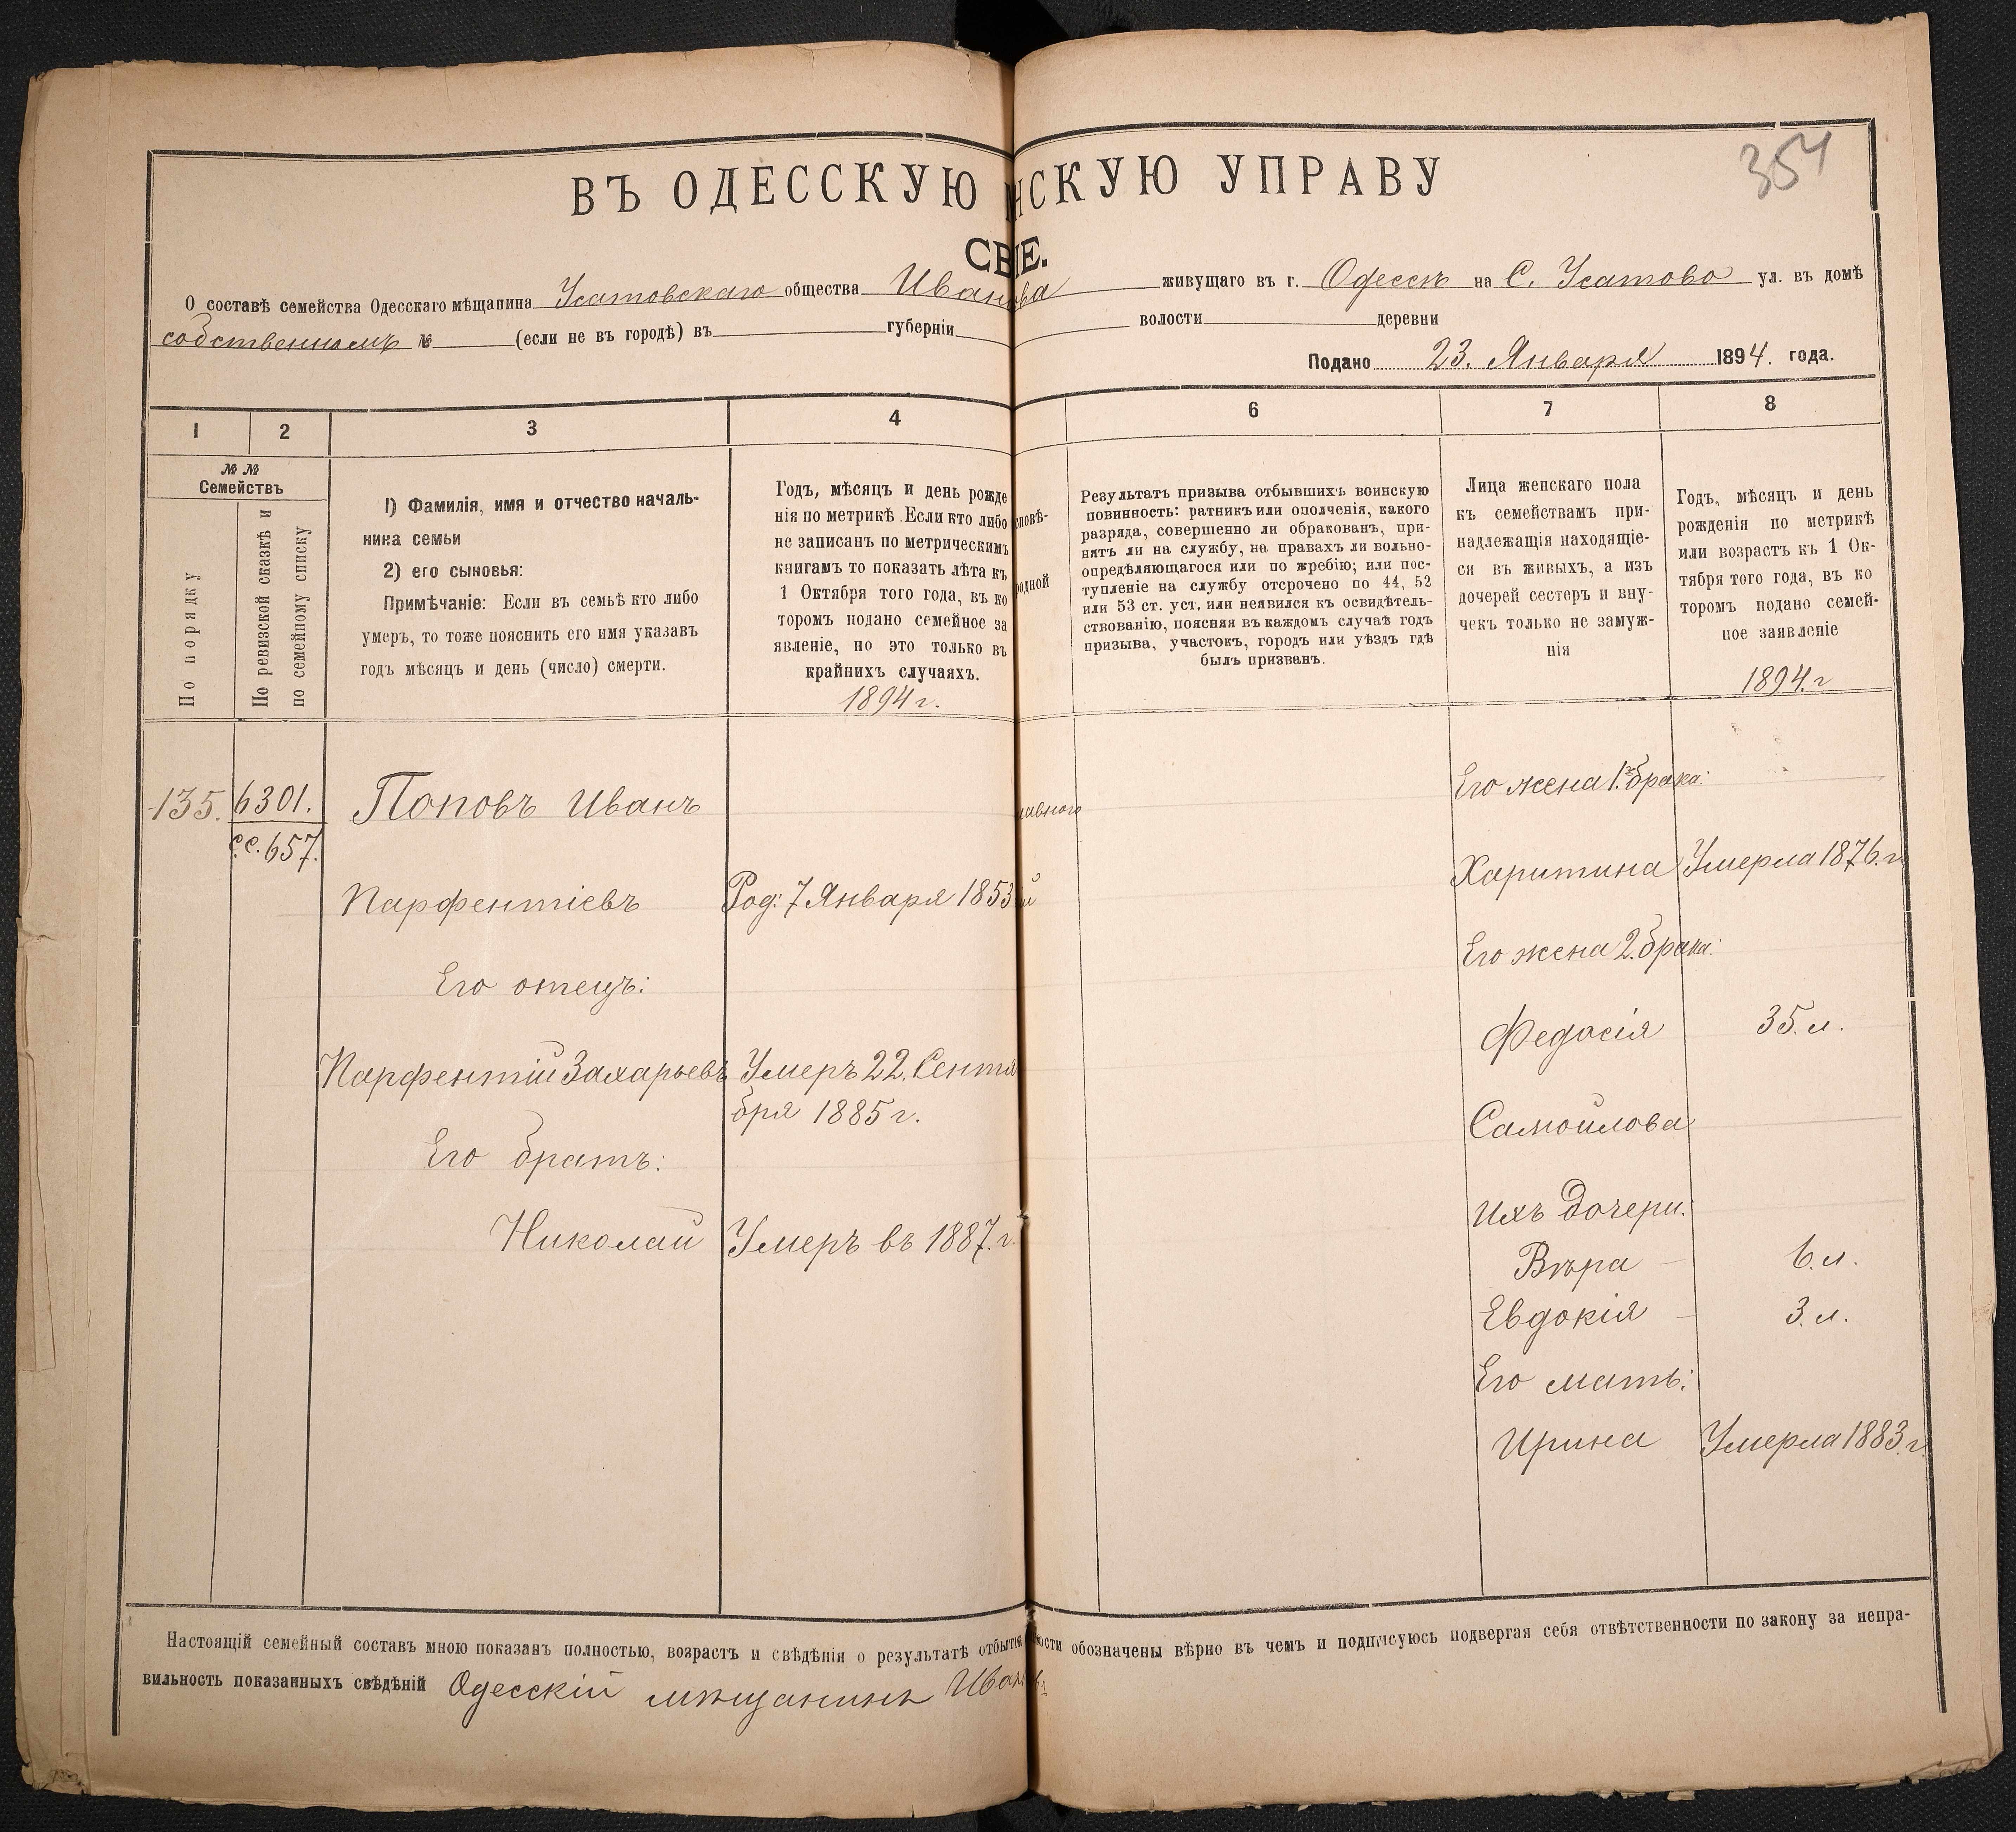 354
ВЪ ОДЕССКУЮ НСКУЮ УПРАВУ
СВ IЕ.
О составѣ семейства Одесскаго мѣщанина Усатовскаго общества Иванова живущаго въ г. Одессѣ на С. Усатово ул. въ домѣ
собственномъ № (если не въ городѣ) въ губерніи волости деревни
Подано 23. Января 1894. года.
1 2 3 4 6 7 8
№ №
Семействъ
По порядку
По ревизской сказкѣ и
по семейному списку
1) Фамилія, имя и отчество началь-
ника семьи
2) его сыновья:
Примѣчаніе: Если въ семьѣ кто либо
умеръ, то тоже пояснить его имя указавъ
годъ мѣсяцъ и день (число) смерти.
Годъ, мѣсяцъ и день рожде
нія по метрикѣ. Если кто либо
не записанъ по метрическимъ
книгамъ то показать лѣта къ
1 Октября того года, въ ко
торомъ подано семейное за
явленіе, но это только въ
крайнихъ случаяхъ.
1894 г.
сповѣ-
одной
Результатъ призыва отбывшихъ воинскую
повинность: ратникъ или ополченія, какого
разряда, совершенно ли обракованъ, при-
нятъ ли на службу, на правахъ ли вольно-
опредѣляющагося или по жребію; или пос-
тупленіе на службу отсрочено по 44, 52
или 53 ст. уст. или неявился къ освидѣтель-
ствованію, поясняя въ каждомъ случаѣ годъ
призыва, участокъ, городъ или уѣздъ гдѣ
былъ призванъ.
Лица женскаго пола
къ семействамъ при-
надлежащія находящіе-
ся въ живыхъ, а изъ
дочерей сестеръ и вну-
чекъ только не замуж-
нія
Годъ, мѣсяцъ и день
рожденія по метрикѣ
или возрастъ къ 1 Ок-
тября того года, въ ко
торомъ подано семей-
ное заявленіе
1894. г
135. 6301.
с.с. 657.
Поповъ Иванъ
Парфентіевъ Род: 7 Января 1853
Его отецъ:
Парфентій Захарьевъ Умеръ 22. Сентя
бря 1885 г.
Его братъ:
Николай Умеръ въ 1887. г.
авнаго
Его жена 1го брака:
Харитина Умерла 1876. г
Его жена 2. брака:
Федосія 35. л.
Самойлова
Ихъ дочери:
Вѣра 6. л.
Евдокія 3. л.
Его мать:
Ирина Умерла 1883. г
Настоящій семейный составъ мною показанъ полностью, возрастъ и свѣдѣнія о результатѣ отбытія ности обозначены вѣрно въ чемъ и подписуюсь подвергая себя отвѣтственности по закону за непра-
вильность показанныхъ свѣдѣній Одесскій мѣщанинъ Иван